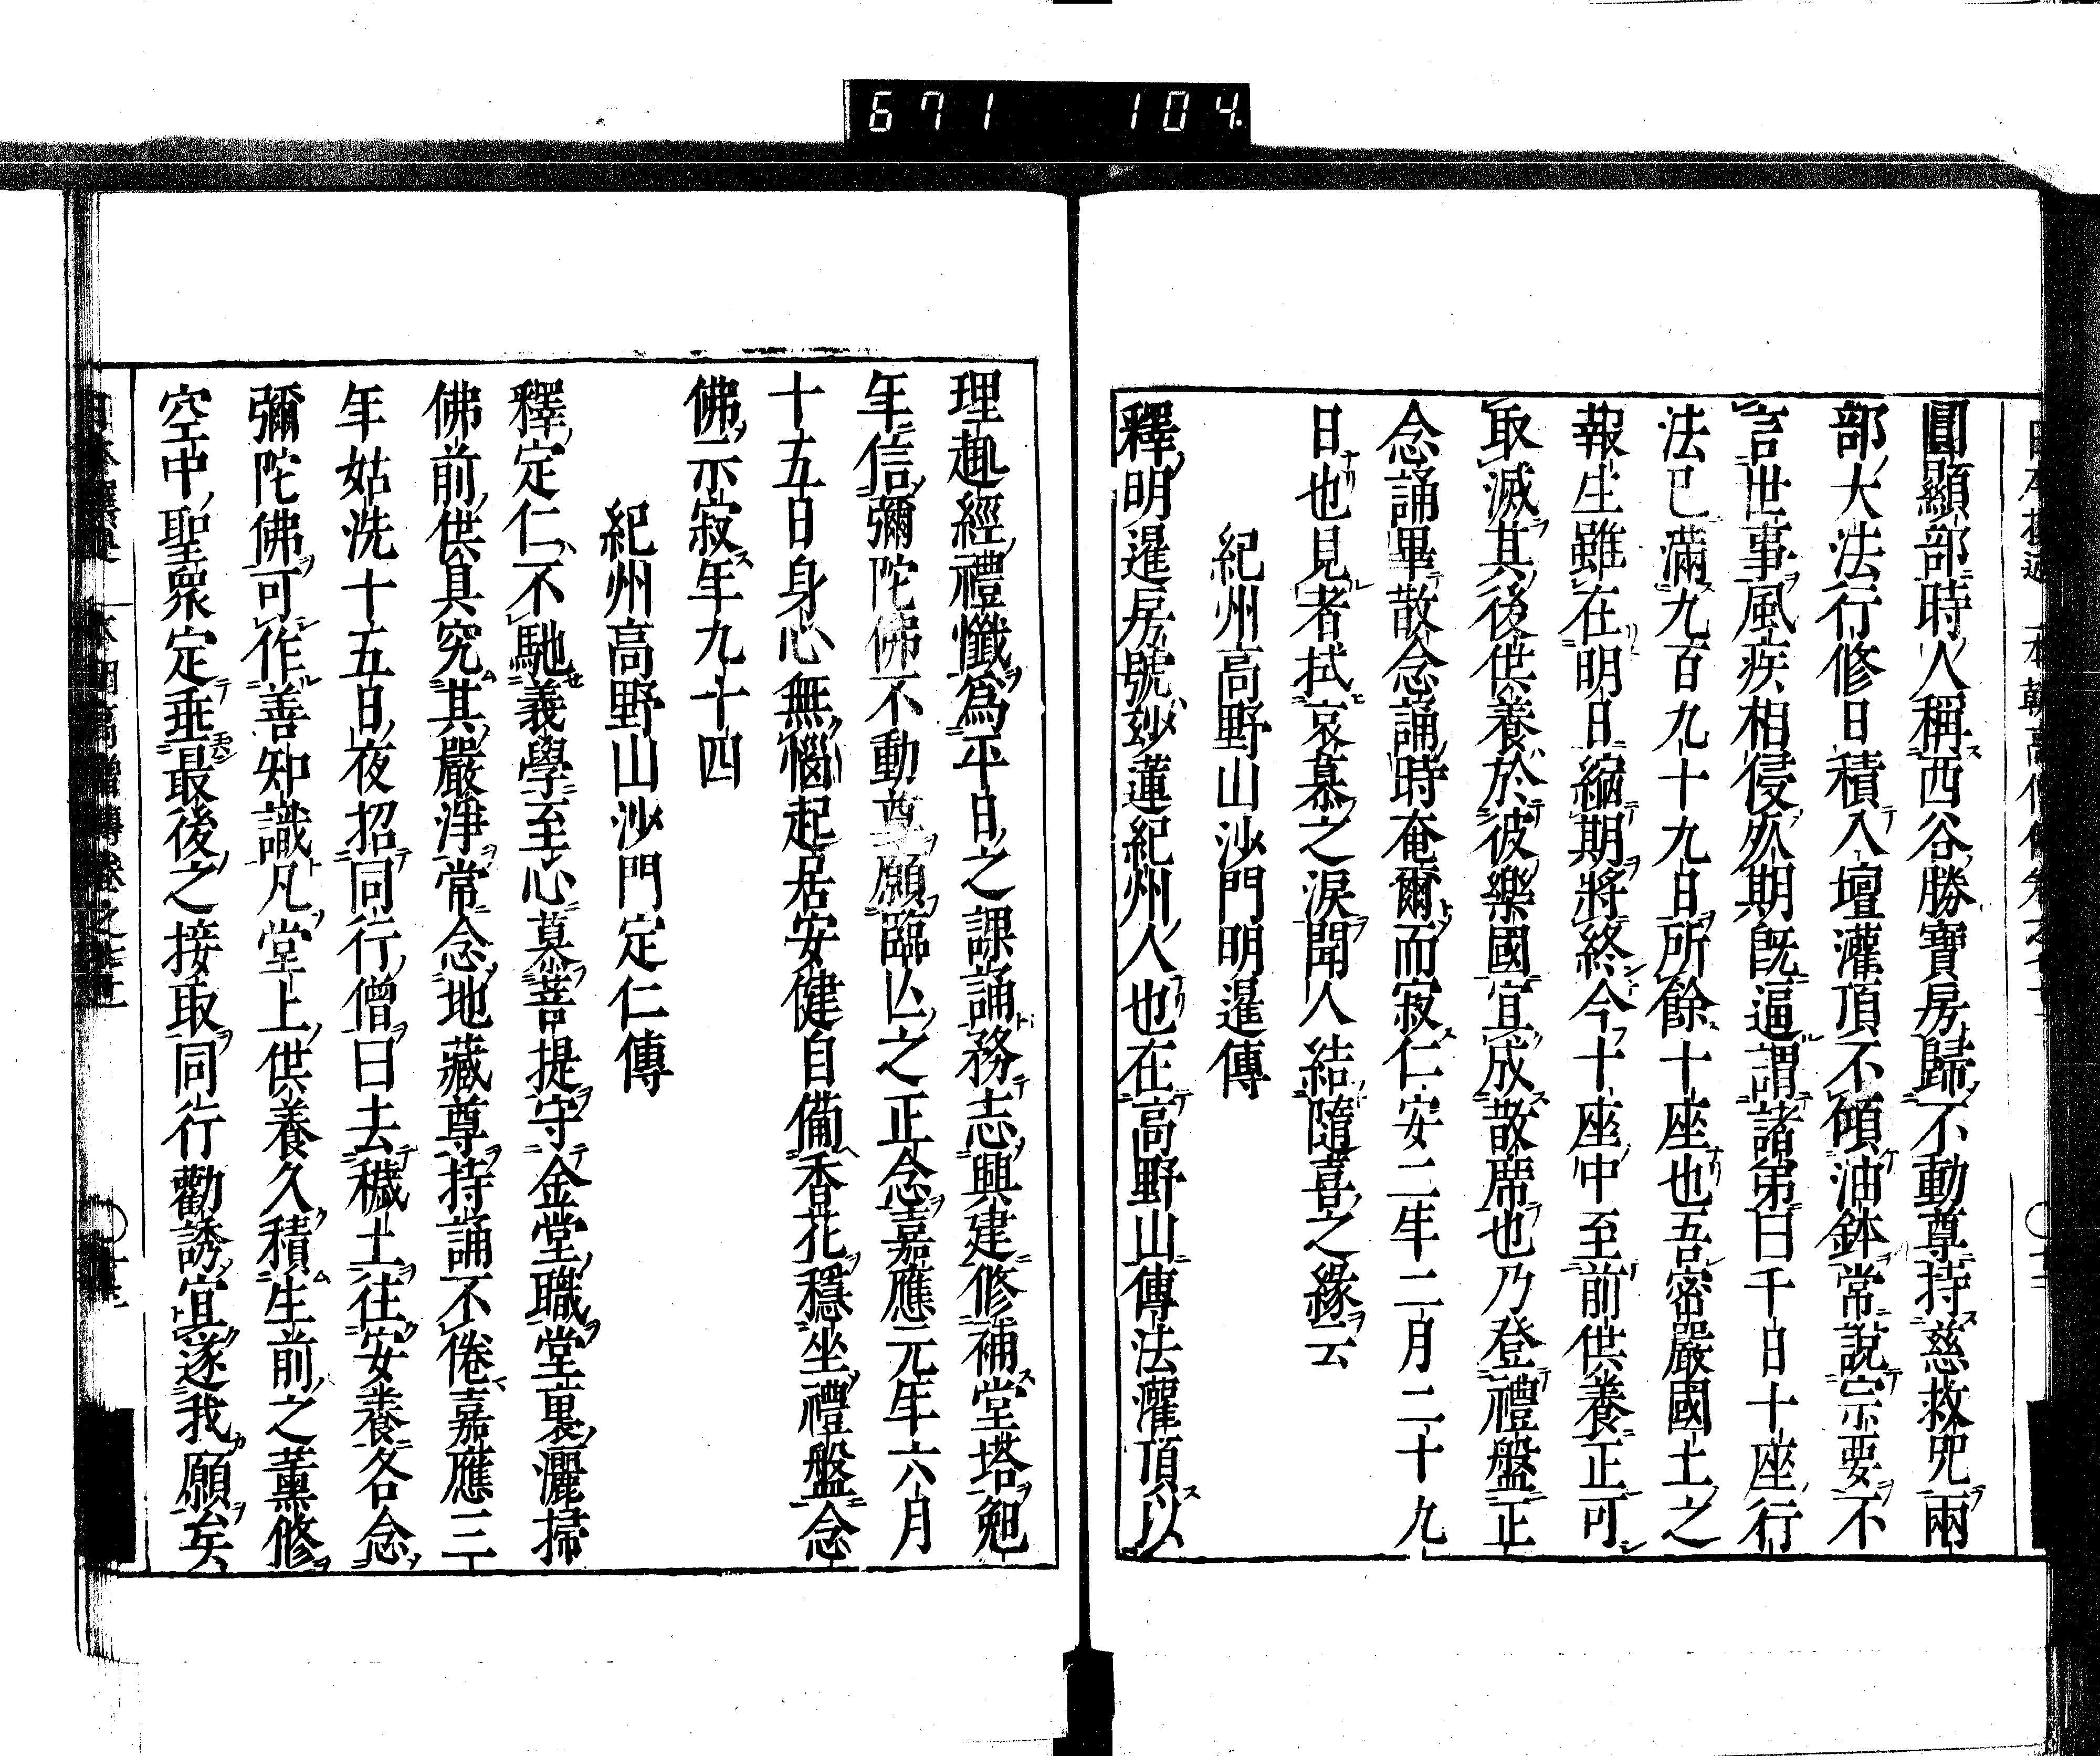 671 104
圓顯部時人稱西谷勝寶房歸不動尊持慈救咒兩
部大法行修日積入壇灌頂不傾油鉢常說宗要不
言世事風疾相侵死期既逼謂諸弟曰千日十座行
法已滿九百九十九日所餘十座也吾密嚴國土之
報生雖在明日縮期將終今十座中至前供養正可
取滅其後供養於彼樂國宜成散席也乃登禮盤正
念誦畢散念誦時奄爾而寂仁安二年二月二十九
日也見者拭哀慕之淚聞人結隨喜之緣云
紀州高野山沙門明暹傳
釋明暹房號妙蓮紀州人也在高野山傳法灌頂以
理趣經禮懺為平日之課誦務志興建修補堂塔勉
年信彌陀佛不動尊願臨亾之正念嘉應元年六月
十五日身心無惱起居安健自備香花穩坐禮盤念
佛示寂年九十四
紀州高野山沙門定仁傳
釋定仁不馳義學至心慕菩提守金堂職堂裏灑掃
佛前供具究其嚴淨常念地藏尊持誦不倦嘉應三
年姑洗十五日夜招同行僧曰去穢土往安養各念
彌陀佛可作善知識凡堂上供養久積生前之薰修
空中聖衆定垂最後之接取同行勸誘宜遂我願矣